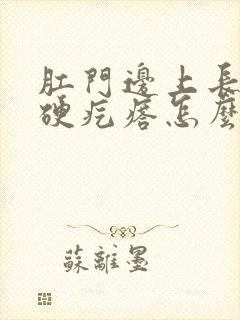 肛門邊上長
硬疙瘩怎麼
蘇離墨